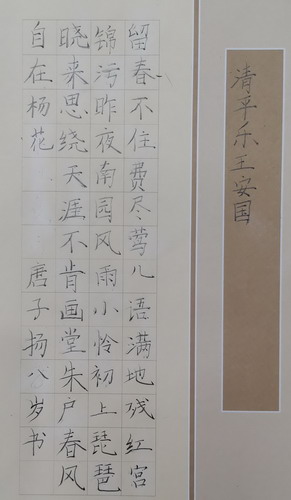 清平乐王安国
留春不住费尽莺儿语满地残红宫
锦污昨夜南园风雨小怜初上琵琶
晓来思绕天涯不肯画堂朱户春风
自在杨花 唐子扬八岁书